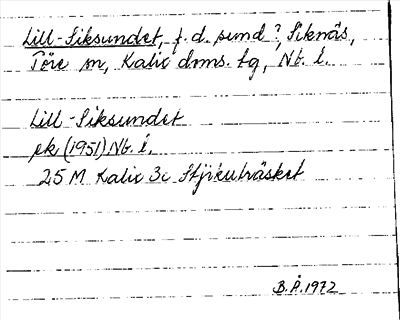 Lill-Siksundet, f.d. sund?, Siknäs,
Töre sn, Kalix dmns. tg, Nb. l.
Lill-Siksundet
ek (1951) Nb. l.
25 M Kalix 3c Stjikuträsket
B.Å. 1972